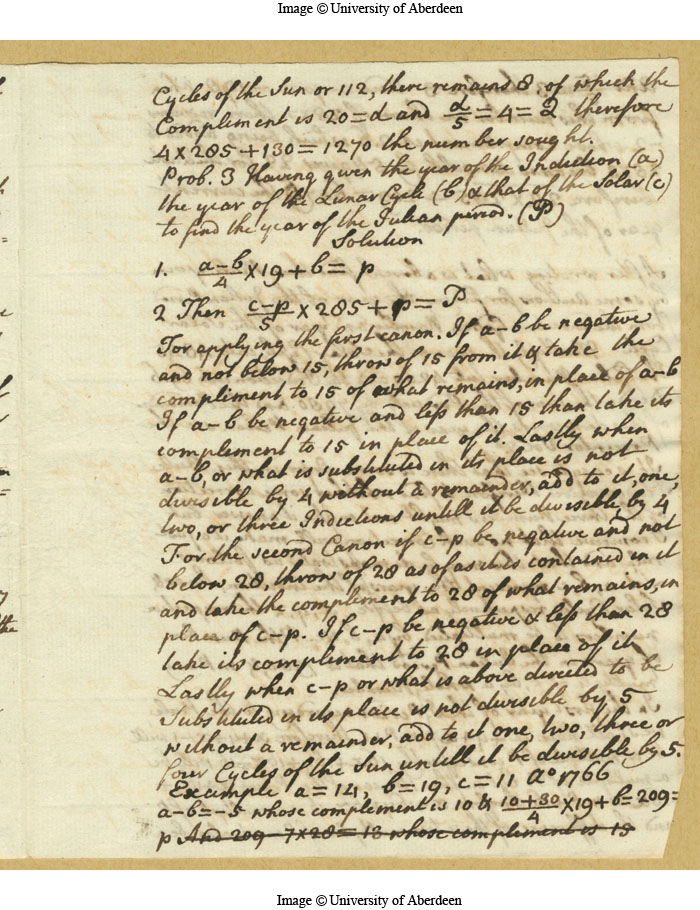 Image © University of Aberdeen
Cycles of the Sun or 112, there remains 8, of which the
Compliment is 20 = d and d/5 = 4 = 2 therefore
4 × 285 + 130 = 1270 the number sought.
Prob. 3 Having given the year of the Indiction (a)
the year of the Lunar Cycle (b) & that of the Solar (c)
to find the year of the Julian period. (P)
Solution
1. a-b/4 × 19 + b = p
2 Then c-p/5 × 285 + p = P
For applying the first canon. If a-b be negative
and not below 15, throw of 15 from it & take the
compliment to 15 of what remains, in place of a-b
If a-b be negative and less than 15 than take its
complement to 15 in place of it. Lastly when
a-b, or what is substituted in its place is not
divisible by 4 without a remainder, add to it, one,
two, or three Indictions untill it be divisible by 4
For the second Canon if c-p be negative and not
below 28, throw of 28 as of as it is contained in it
and take the compliment to 28 of what remains, in
place of c-p. If c-p be negative & less than 28
take its compliment to 28 in place of it
Lastly when c-p or what is above directed to be
Substituted in its place is not divisible by 5
without a remainder, add to it one, two, three or
four Cycles of the Sun untill it be divisible by 5.
Example a = 14, b = 19, c = 11 A° 1766
a-b = -5 whose complement is 10 & 10+30/4 × 19 + b = 209 =
p And 209 - 7×28 = 13 whose complement is 15
the
Image © University of Aberdeen